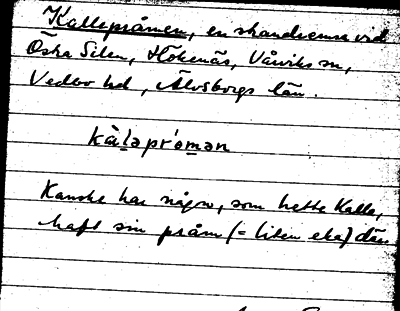 Kallepråmen, en strandremsa vid
Östra Silen, Hökenäs, Vårviks sn,
Vedbo hd, Älvsborgs län.
kàl̥apr'om̥ən
Kanske har någon, som hette Kalle,
haft sin pråm (= liten eka) där